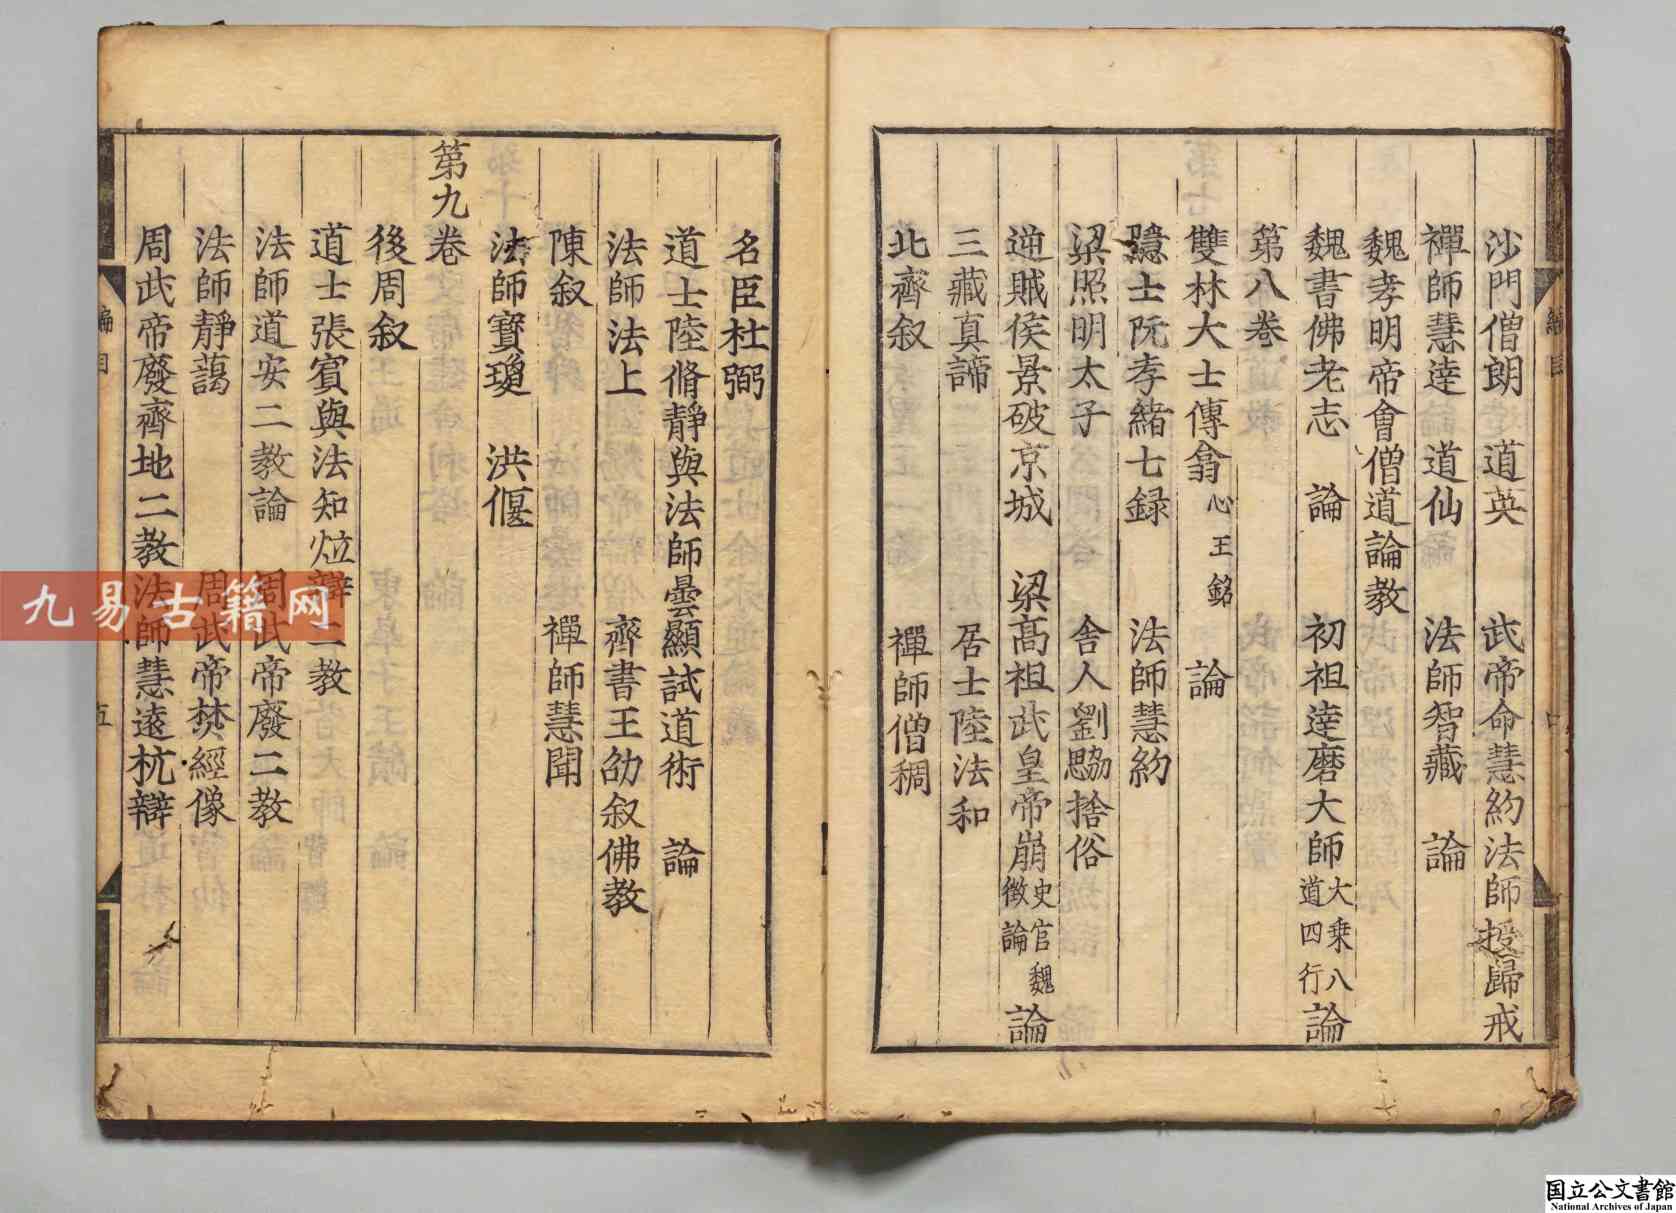 沙門僧朗　道英　武帝命慧約法師授歸戒
禪師慧達　道仙　法師智藏　論
魏孝明帝會僧道論教
魏書佛老志　論　初祖達磨大師大乗八道四行論
第八卷
雙林大士傳翕心王銘　論
隱士阮孝緒七録　法師慧約
梁照明太子　舎人劉勰捨俗
逆賊侯景破京城　梁髙祖武皇帝崩史官魏徴論　論
三藏真諦　居士陸法和
北齊叙　禪師僧稠
名臣杜弼
道士陸脩静與法師曇顯試道術　論
法師法上　齊書王劭叙佛教
陳叙　禪師慧聞
法師寳瓊　洪偃
第九卷
後周叙
道士張賔與法知炫辯二教
法師道安二教論　周武帝廢二教
法師靜藹　周武帝焚經像
周武帝廢齊地二教法師慧遠杭辯
編目
五
九易古籍网
国立公文書館
National Archives of Japan